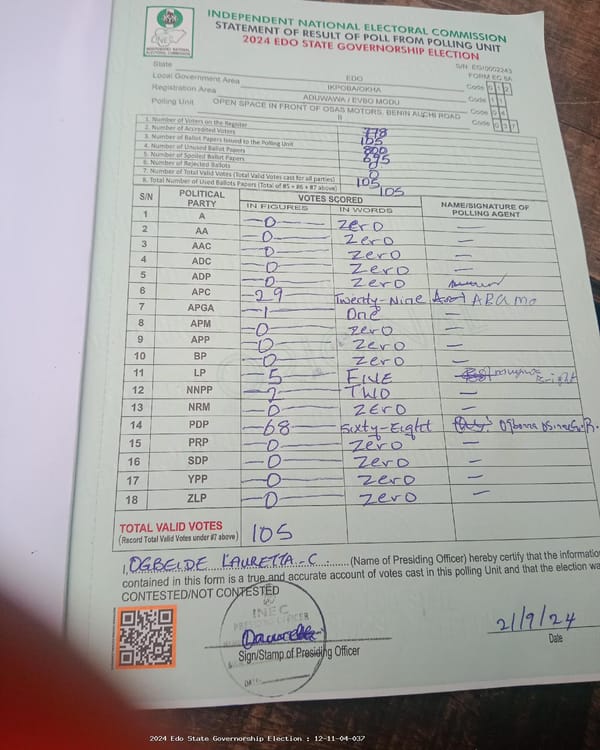 INDEPENDENT NATIONAL ELECTORAL COMMISSION
STATEMENT OF RESULT OF POLL FROM POLLING UNIT
2024 EDO STATE GOVERNORSHIP ELECTION
S/N: EG/0002243
FORM EC 8A
State EDO Code 12
Local Government Area IKPOBA/OKHA Code 11
Registration Area ADUWAWA / EVBO MODU Code 04
Polling Unit OPEN SPACE IN FRONT OF OSAS MOTORS, BENIN AUCHI ROAD II Code 037
1. Number of Voters on the Register 778
2. Number of Accredited Voters 105
3. Number of Ballot Papers Issued to the Polling Unit 800
4. Number of Unused Ballot Papers 695
5. Number of Spoiled Ballot Papers 0
6. Number of Rejected Ballots 0
7. Number of Total Valid Votes (Total Valid Votes cast for all parties) 105
8. Total Number of Used Ballots Papers (Total of #5 + #6 + #7 above) 105
S/N POLITICAL PARTY VOTES SCORED NAME/SIGNATURE OF POLLING AGENT
IN FIGURES IN WORDS
1 A 0 Zero
2 AA 0 Zero
3 AAC 0 Zero
4 ADC 0 Zero
5 ADP 0 Zero
6 APC 29 Twenty-Nine
7 APGA 1 One
8 APM 0 Zero
9 APP 0 Zero
10 BP 0 Zero
11 LP 5 FIVE
12 NNPP 2 TWO
13 NRM 0 ZERO
14 PDP 68 Sixty-Eight
15 PRP 0 Zero
16 SDP 0 Zero
17 YPP 0 Zero
18 ZLP 0 Zero
TOTAL VALID VOTES 105
(Record Total Valid Votes under #7 above)
I, OGBEIDE LAURETTA-C (Name of Presiding Officer) hereby certify that the information
contained in this form is a true and accurate account of votes cast in this polling Unit and that the election wa
CONTESTED/NOT CONTESTED
INEC
PRESIDING OFFICER
21/9/24
Sign/Stamp of Presiding Officer
Date
2024 Edo State Governorship Election : 12-11-04-037